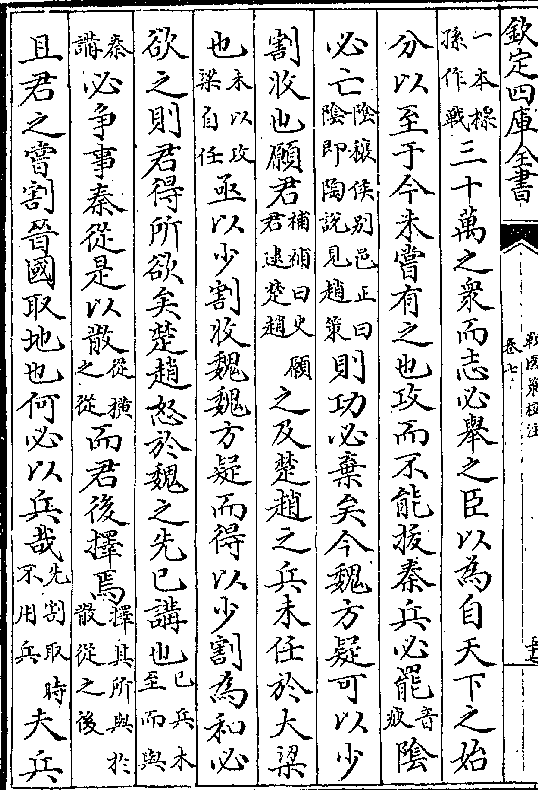 欽定四庫全書
戰國策校注
卷七
一本標孫作戰三十萬之衆而志必舉之臣以為自天下之始
分以至于今未嘗有之也攻而不能拔秦兵必罷音疲陰
必亡陰穰侯别邑正曰陰即陶說見趙策則功必棄矣今魏方疑可以少
割收也願君補補曰史願君逮楚趙之及楚趙之兵未任於大梁
也未以攻梁自任亟以少割收魏魏方疑而得以少割為和必
欲之則君得所欲矣楚趙怒於魏之先已講也已兵未至而與
秦講必争事秦從是以散從橫之從而君後擇焉擇其所與於散從之後
且君之嘗割晉國取地也何必以兵哉先割取時不用兵夫兵